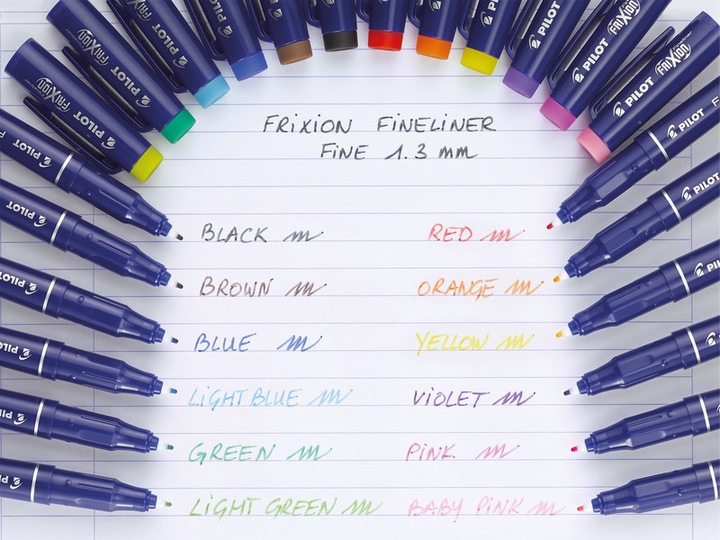 FRiXiON FiNELiNER
FiNE 1.3 mm
BLACK
RED
BROWN
ORANGE
BLUE
YELLOW
LiGHT BLUE
ViOLET
GREEN
PiNK
LiGHT GREEN
BABY PiNK
PILOT FriXion
PILOT FriXion
PILOT
PILOT
PILOT
PILOT
PILOT FriXion
PILOT FriXion
PILOT
PILOT
PILOT
PILOT
PILOT
PILOT
PILOT
PILOT
PILOT